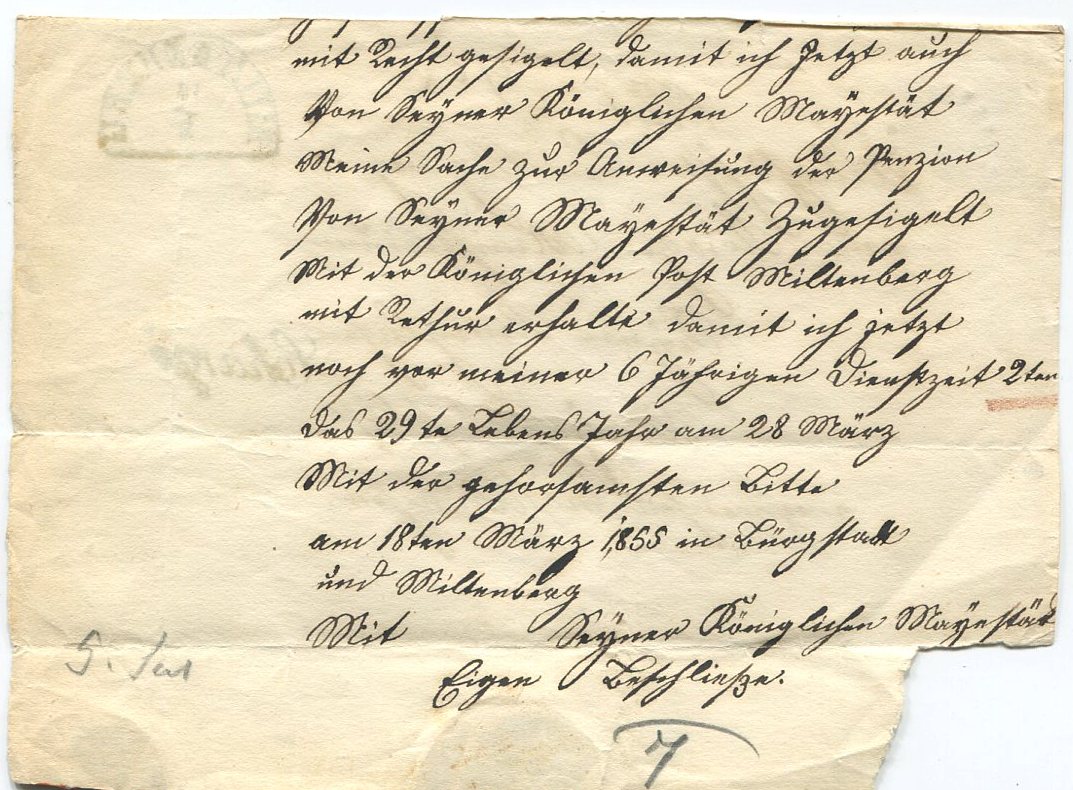 mit Recht gesigelt, damit ich Jetzt auch
Von Seyner Königlichen Mayestät
Meine Sache zur Anweisung der Penzion
Von Seyner Mayestät Zugesigelt
Mit der Königlichen Post Miltenberg
mit Rethur erhalte damit ich jetzt
noch vor meiner 6 Jährigen Dienstzeit 2ten
das 29te Lebens Jahr am 28 März
Mit der gehorsamsten Bitte
am 18ten März 1855 in Bürgstadt
und Miltenberg
Mit Seyner Königlichen Mayestät
Eigen Beschließe.
7